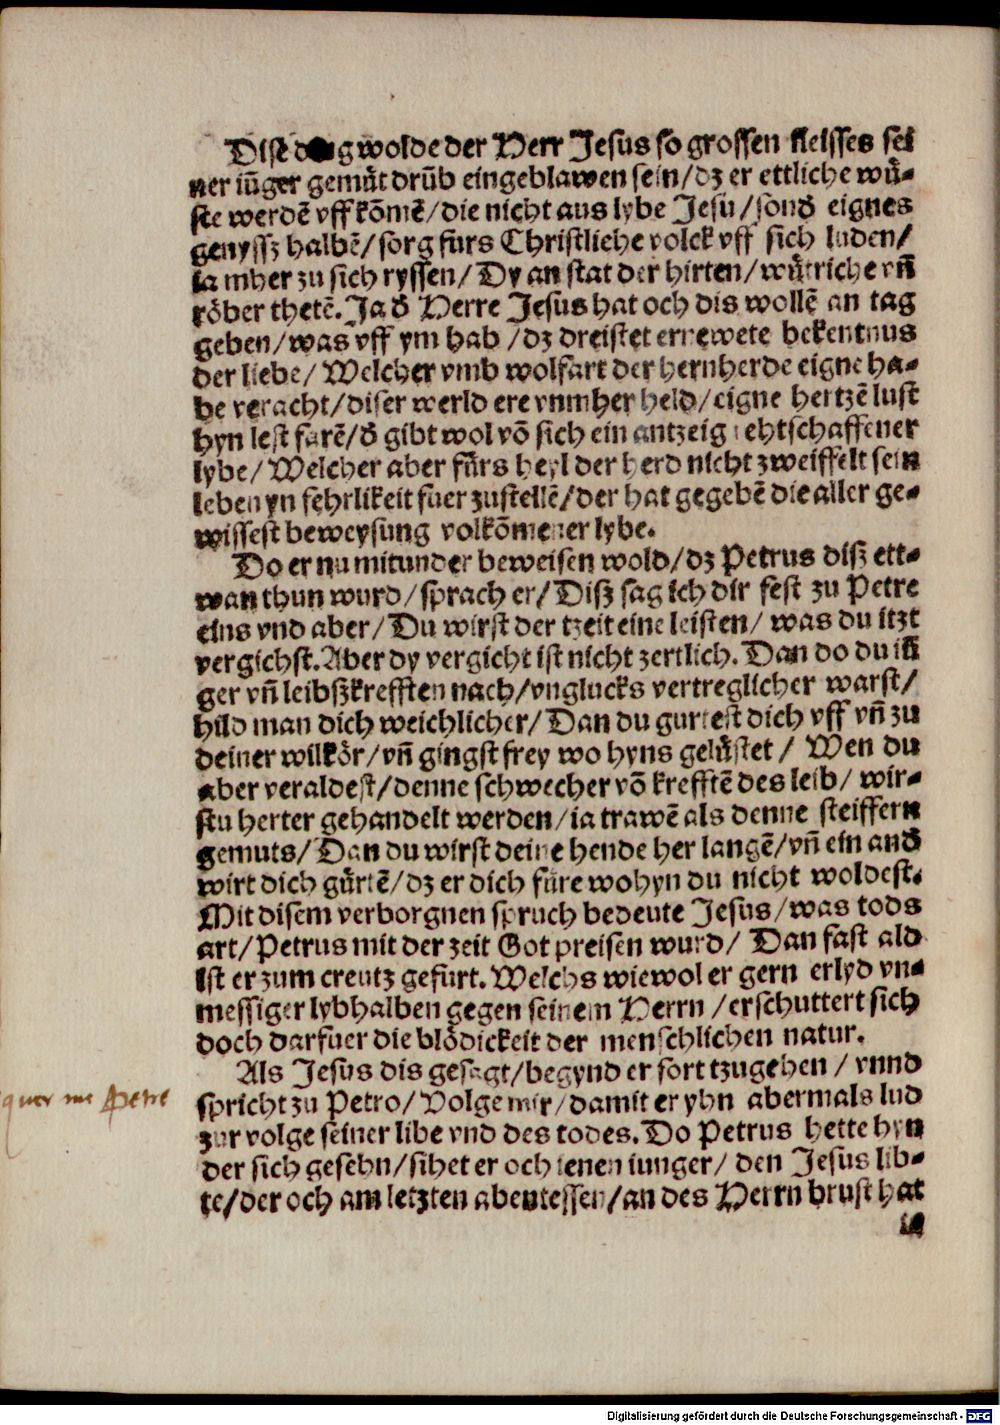 Dise ding wolde der Herr Jesus so grossen fleisses sei
ner iũger gemüt drũb eingeblawen sein/dz er ettliche wü-
ste werdẽ vff kõmẽ/die nicht aus lybe Jesu/sonđ eignes
genyssz halbẽ/sorg furs Christliche volck vff sich luden/
ia mher zu sich ryssen/Dy an stat der hirten/wütriche vñ
röber thetẽ. Ja đ Herre Jesus hat och dis wollẽ an tag
geben/was vff ym hab/dz dreistet ernewete bekentnus
der liebe/Welcher vmb wolfart der hernherde eigne ha-
be veracht/diser werld ere vnmher held/eigne hertzẽ lust
hyn lest farẽ/đ gibt wol võ sich ein antzeig rehtschaffener
lybe/Welcher aber fürs heyl der herd nicht zweiffelt sein
leben yn fehrlikeit fuer zustellẽ/der hat gegebẽ die aller ge-
wissest beweysung volkõmener lybe.
Do er nu mitunder beweisen wold/dz Petrus disz ett-
wan thun wurd/sprach er/Disz sag ich dir fest zu Petre
eins vnd aber/Du wirst der tzeit eine leisten/was du itzt
vergichst. Aber dy vergicht ist nicht zertlich. Dan do du iũ
ger vñ leibszkrefften nach/vnglucks vertreglicher warst/
hild man dich weichlicher/Dan du gurtest dich vff vñ zu
deiner wilkör/vñ gingst frey wo hyns gelüstet/Wen du
aber veraldest/denne schwecher võ krefftẽ des leib/wir-
stu herter gehandelt werden/ia trawẽ als denne steiffern
gemuts/Dan du wirst deine hende her langẽ/vñ ein anđ
wirt dich gürtẽ/dz er dich füre wohyn du nicht woldest.
Mit disem verborgnen spruch bedeute Jesus/was tods
art/Petrus mit der zeit Got preisen wurd/Dan fast ald
Ist er zum creutz gefurt. Welchs wiewol er gern erlyd vn-
messiger lybhalben gegen seinem Herrn/erschuttert sich
doch darfuer die blödickeit der menschlichen natur.
Als Jesus dis gesagt/begynd er fort tzugehen/vnnd
spricht zu Petro/Volge mir/damit er yhn abermals lud
zur volge seiner libe vnd des todes. Do Petrus hette hyn
der sich gesehn/sihet er och ienen iunger/den Jesus lib-
te/der och am letzten abentessen/an des Herrn brust hat
me Petre
Digitalisierung gefördert durch die Deutsche Forschungsgemeinschaft - DFG